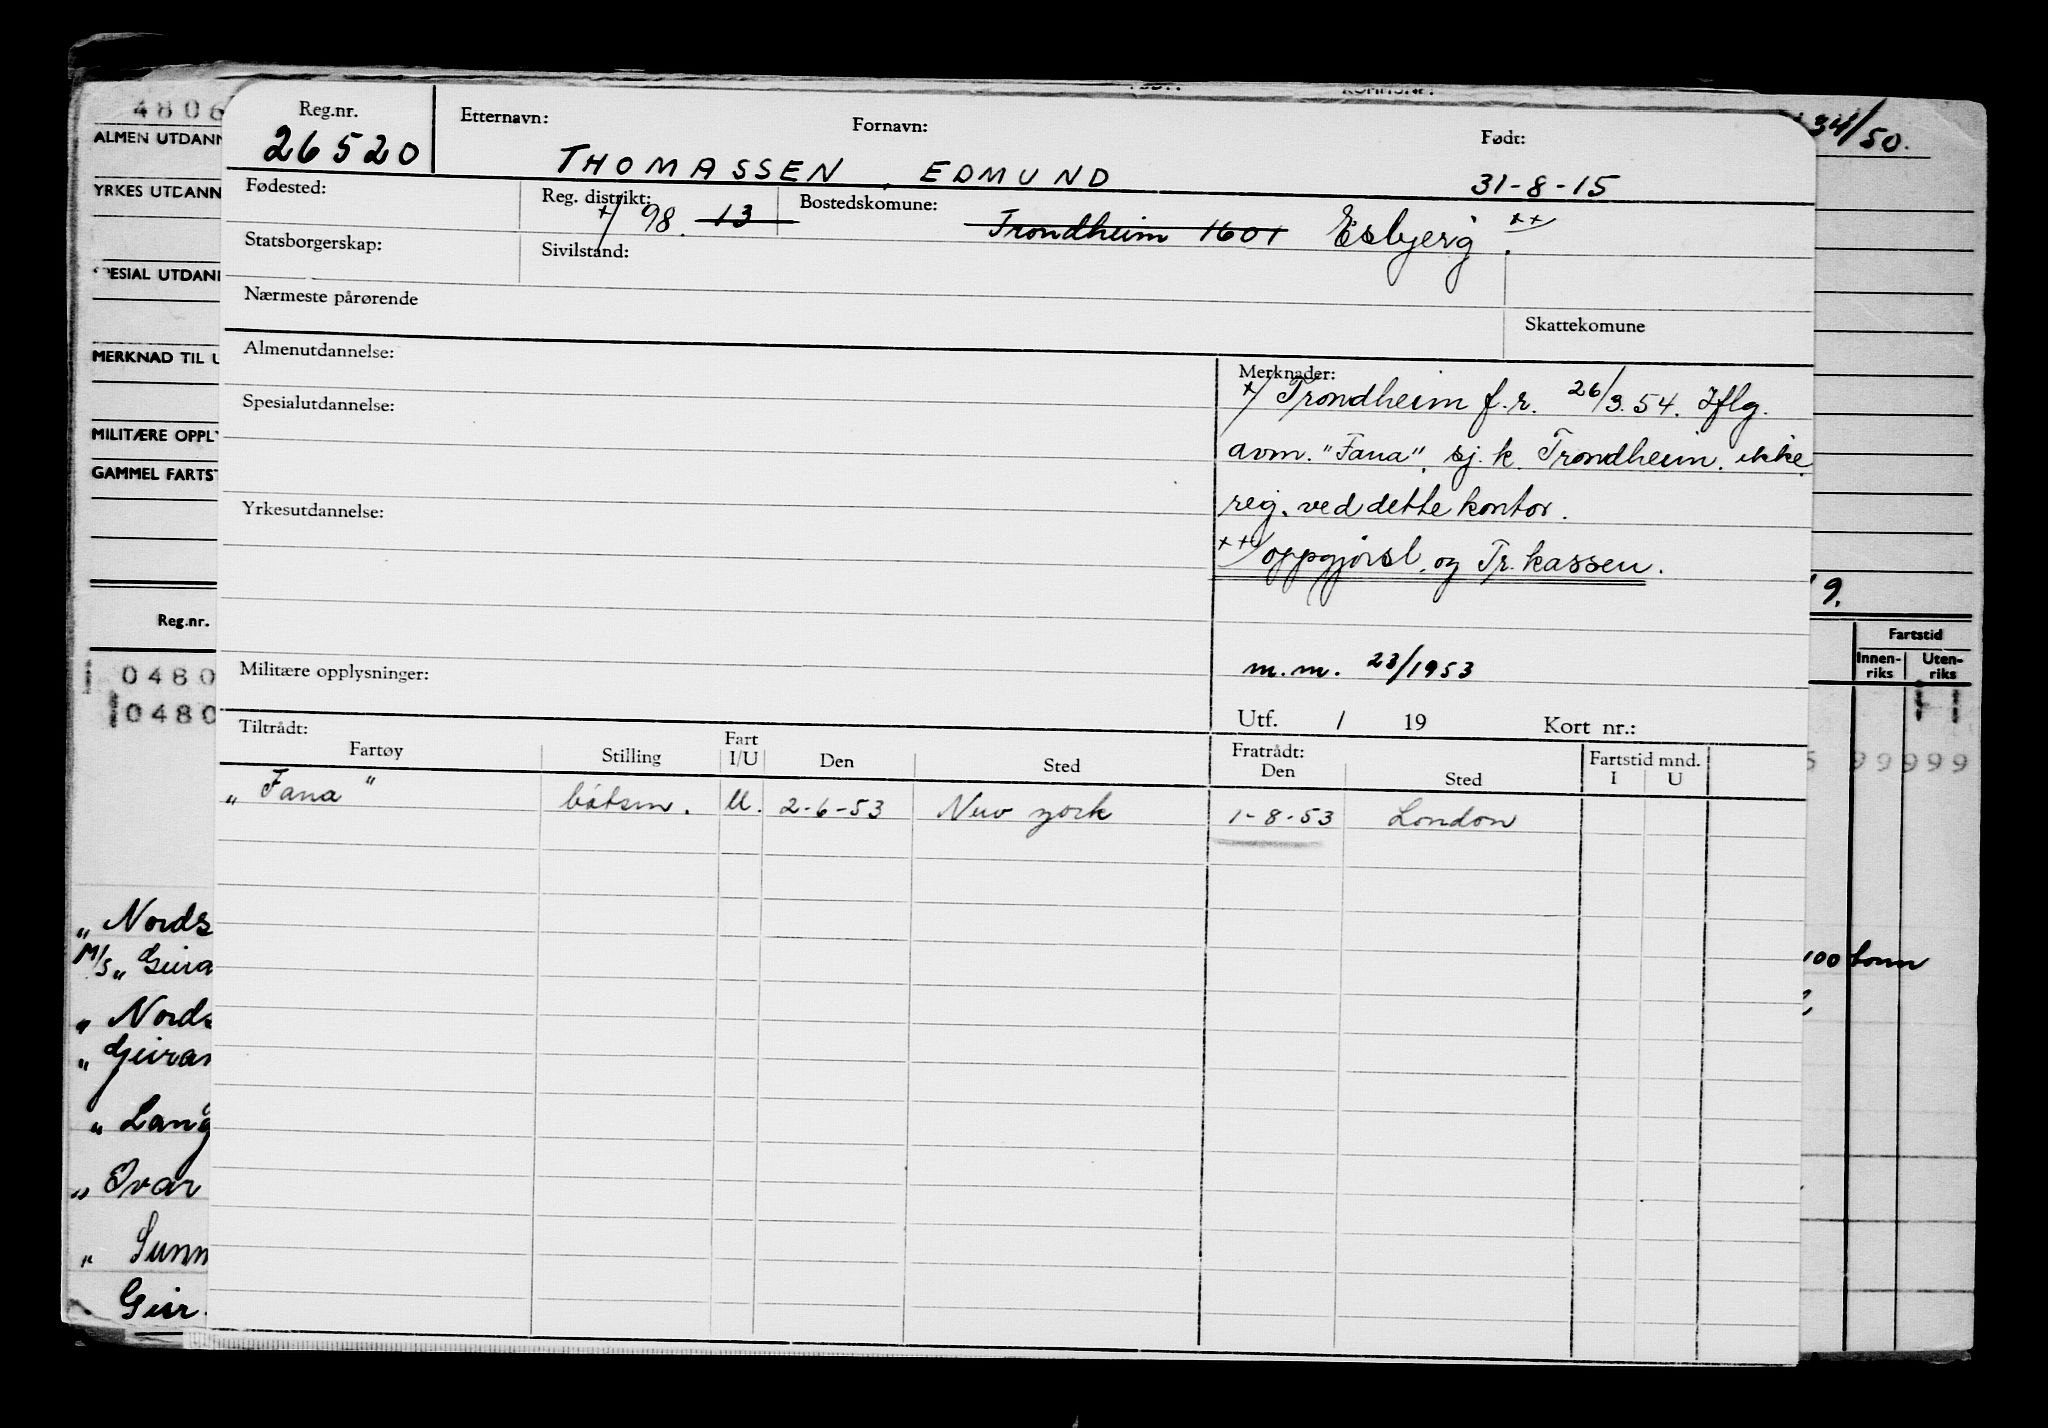 4806
ALMEN UTDANN
YRKES UTDANN
UTDANN
MERKNAD TIL U
MILITÆRE OPPLY
GAMMEL FARTST
Reg.nr.
0480
0480
„ Nords
M/S „ Geira
„ Nords
„ Geiran
„ Lang
„ Ivar
„ Sunn
Geir
Reg.nr. Etternavn: Fornavn: Født:
26520 THOMASSEN, EDMUND 31-8-15
Fødested: Reg. distrikt: Bostedskomune:
+/ 98. 13 Trondheim 1601 Esbjerg ++/.
Statsborgerskap: Sivilstand:
Nærmeste pårørende Skattekomune
Almenutdannelse:
Spesialutdannelse:
Yrkesutdannelse:
Militære opplysninger:
Merknader:
+/ Trondheim f.r. 26/3.54. Iflg.
avm. "Fana", sj.k. Trondheim. ikke
reg. ved dette kontor.
++/ oppgjørsl. og Tr. kassen.
m.m. 23/1953
Utf. / 19 Kort nr.:
Tiltrådt: Fratrådt:
Fartøy Stilling Fart I/U Den Sted Den Sted Fartstid mnd. I U
„ Fana " båtsm. U. 2-6-53 New york 1-8-53 London
34/50.
9.
Fartstid
Innen-riks Uten-riks
99999
100 tonn